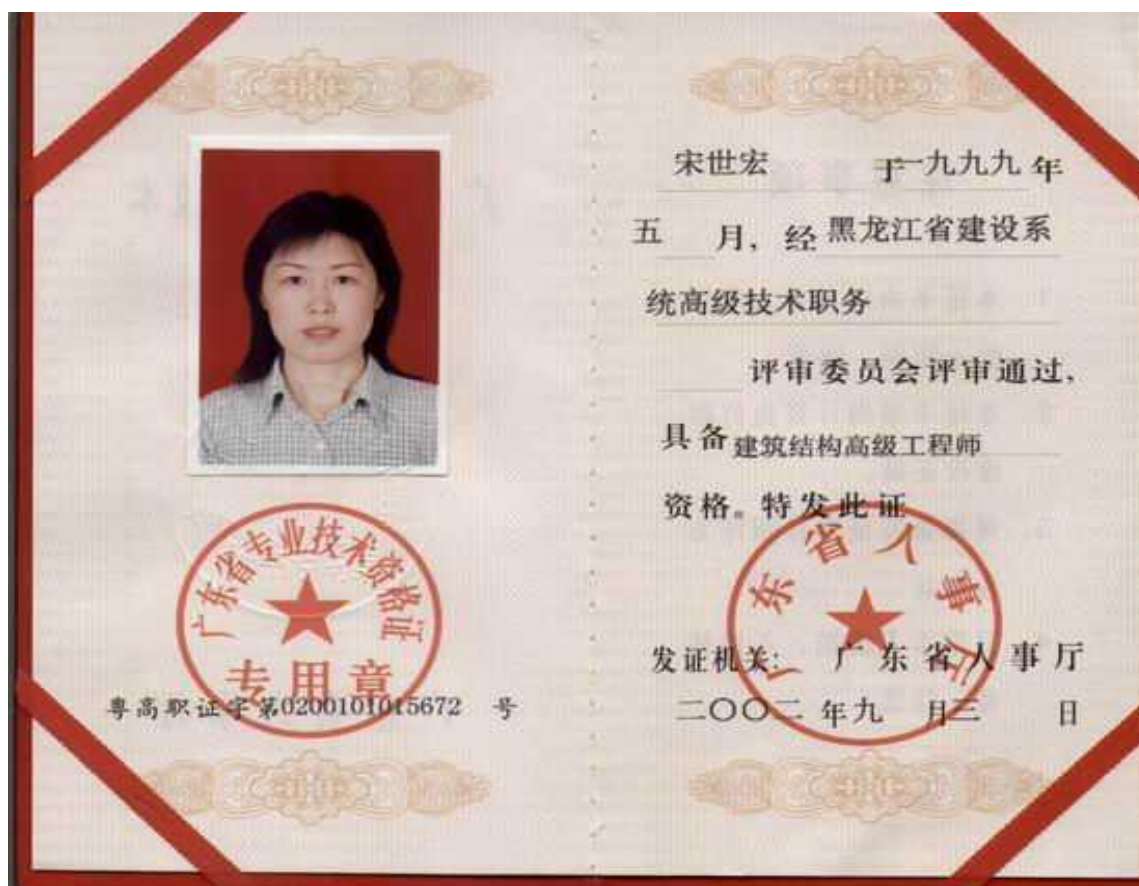 广东省专业技术资格证
专用章
粤高职证字第0200101015672 号
宋世宏 于一九九九年
五 月，经黑龙江省建设系
统高级技术职务
评审委员会评审通过，
具备建筑结构高级工程师
资格。特发此证
广东省人事厅
发证机关： 广东省人事厅
二〇〇二年九 月三 日